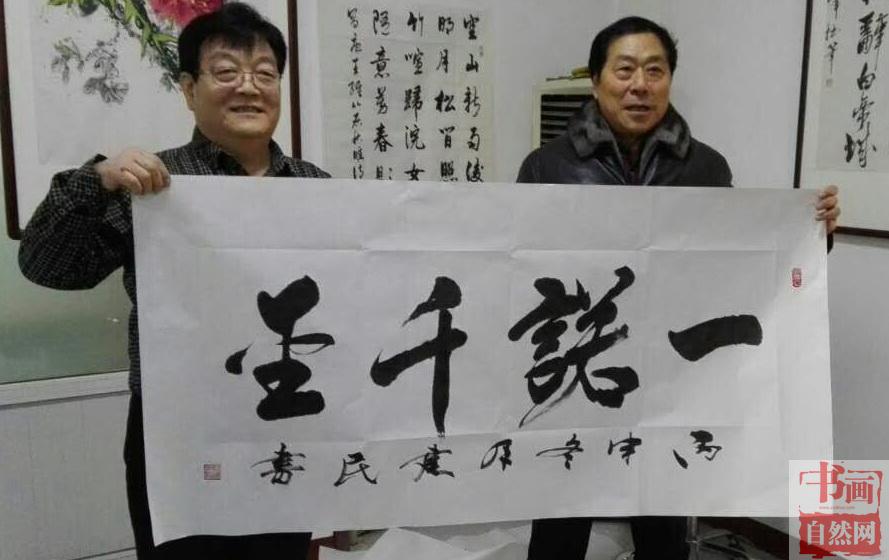 一諾千金
丙申冬
建民書
空山新雨後
明月松間照
竹喧歸浣女
隨意芳春
辭白帝城
书画
自然网